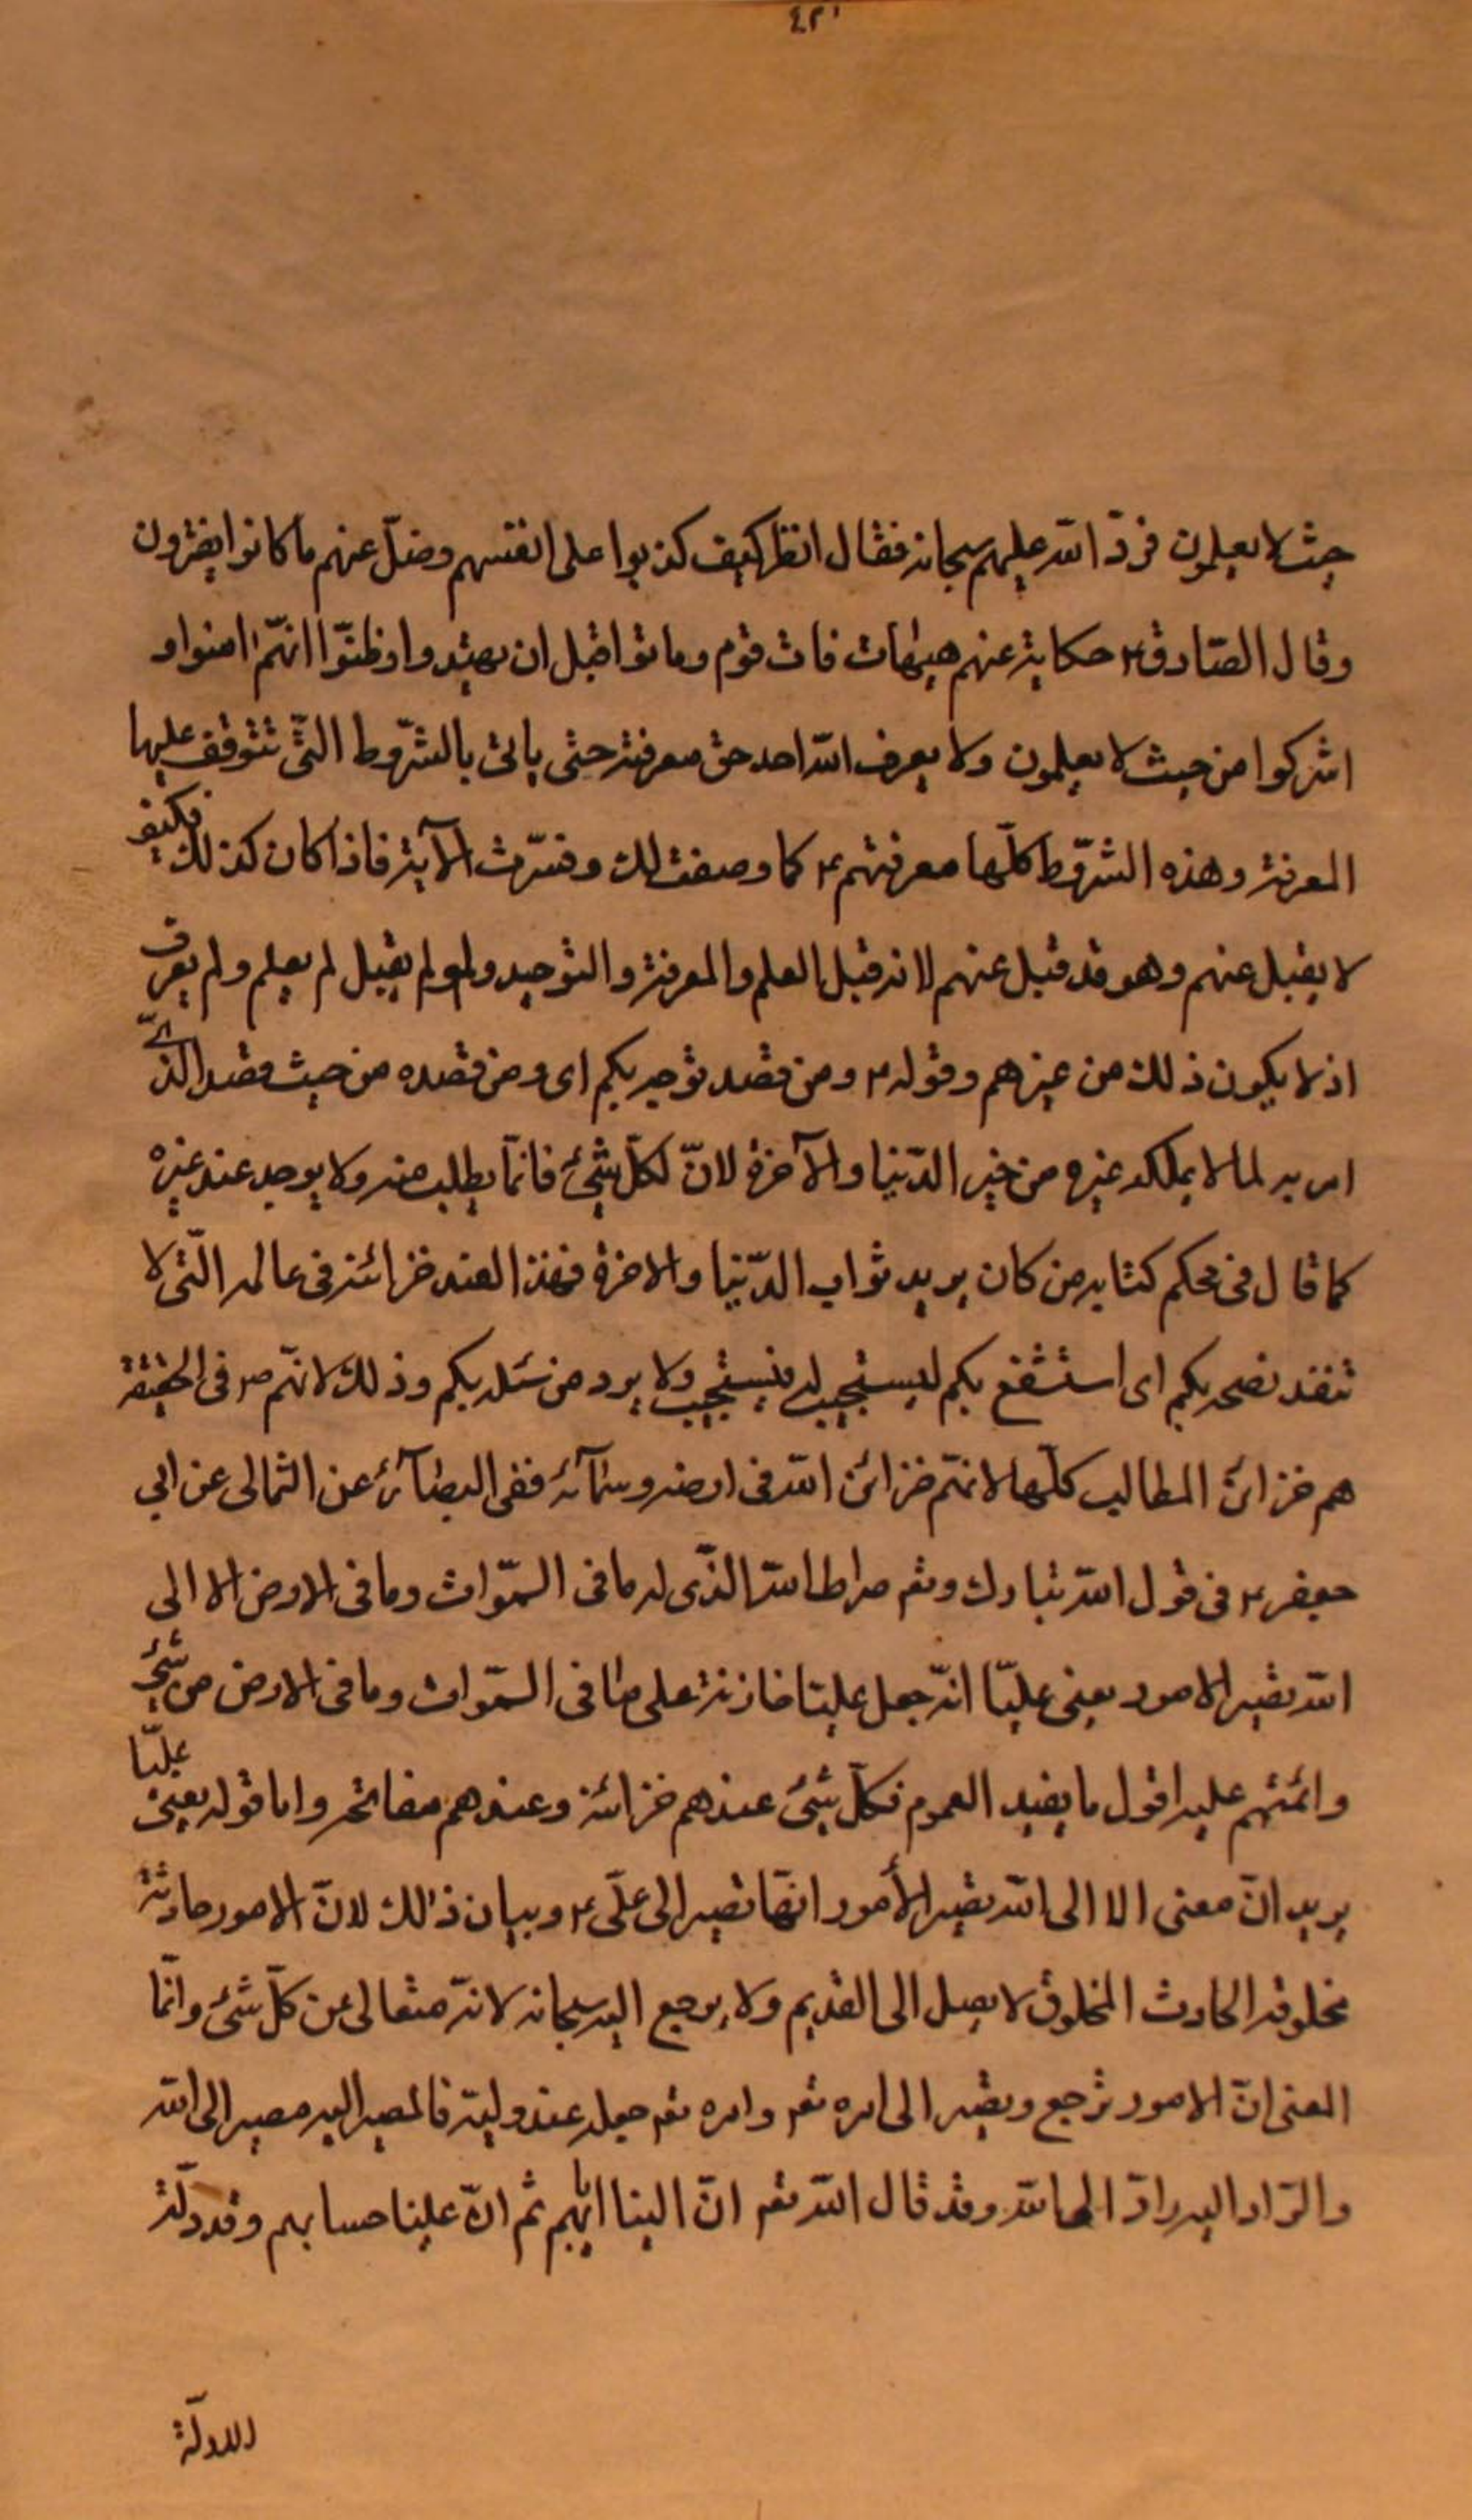 ٤٢١
حيث لا يعلمون فردّ الله عليهم سبحانه فقال انظر كيف كذبوا على انفسهم وضلّ عنهم ما كانوا يفترون
وقال الصّادق ع حكاية عنهم هيهات فات قوم وماتوا قبل ان يهتدوا وظنّوا انّهم امنوا و
اشركوا من حيث لا يعلمون ولا يعرف الله احد حق معرفته حتى ياتى بالشّروط التّى تتوقف عليها
المعرفة وهذه الشّروط كلّها معرفتهم ع كما وصفت لك وفسّرت الآية فاذا كان كذلك فكيف
لا يقبل عنهم وهو قد قبل عنهم لانه قبل العلم والمعرفة والتوحيد ولو لم يقبل لم يعلم ولم يعرف
اذ لا يكون ذلك من غيرهم وقوله ع ومن قصده توجه بكم اى ومن قصده من حيث قصد الذى
امر به لما لا يملكه غيره من خير الدّنيا والآخرة لانّ لكلّ شئ فانّما يطلب منه ولا يوجد عند غيره
كما قال فى محكم كتابه من كان يريد ثواب الدّنيا والاخرة فهذا العند خزائنه فى عالمه الّتى لا
تنفد نصحه بكم اى استشفع بكم ليستجيب له فيستجيب ولا يرد من سئله بكم وذلك لانّهم ص فى الحقيقة
هم خزائن المطالب كلّها لانهم خزائن الله فى ارضه وسمآئه ففى البصآئر عن الثمالى عن ابي
جعفر ع فى قول الله تبارك وتع صراط الله الذّى له ما فى السّموات وما فى الارض الا الى
الله تصير الامور يعنى عليّا انّه جعل عليّا خازنه على ما فى السّموات وما فى الارض من شئ
وائمّتهم عليه اقول ما يفيد العموم فكلّ شئ عندهم خزائنه وعندهم مفاتحه واما قوله يعنى عليّا
يريد انّ معنى الا الى الله تصير الأمور انّها تصير الى علّى ع وبيان ذلك لانّ الامور حادثة
مخلوقة الحادث المخلوق لا يصل الى القديم ولا يرجع اليه سبحانه لانّه متعالى عن كلّ شئ وانّما
المعنى انّ الامور ترجع وتصير الى امره تع وامره تع جعله عند وليّه فالمصير اليه مصير الى الله
والرّاد اليه رادّ الى الله وقد قال الله تع انّ الينا ايابهم ثم انّ علينا حسابهم وقد دلّت
الادلّة